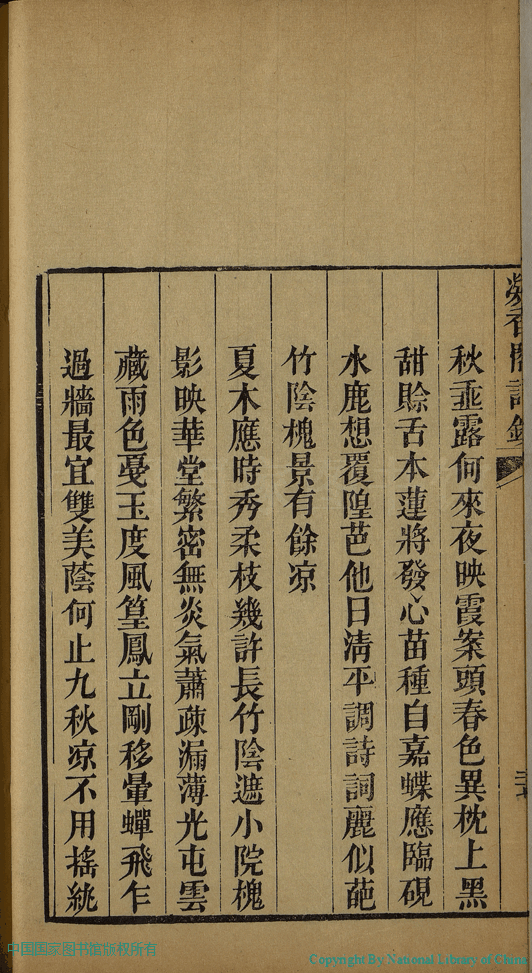 秋垂露何來夜映霞案頭春色異枕上黑
甜賒舌本蓮將發心苗種自嘉蝶應臨硯
水鹿想覆隍芭他日清平調詩詞麗似葩
竹陰槐景有餘凉
夏木應時秀柔枝幾許長竹陰遮小院槐
影映華堂繁密無炎氣蕭疎漏薄光屯雲
藏雨色戞玉度風篁鳳立剛移暈蟬飛乍
過牆最宜雙美蔭何止九秋凉不用搖紈
中国国家图书馆版权所有
Copyright By National Library of China